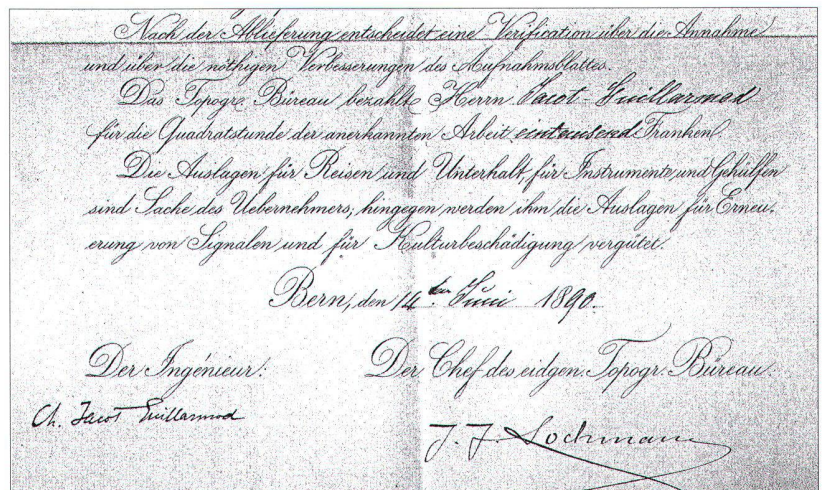 Nach der Ablieferung entscheidet eine Verification über die Annahme
und über die nöthigen Verbesserungen des Aufnahmsblattes.
Das Topogr. Büreau bezahlt Herrn Jacot-Guillarmod
für die Quadratstunde der anerkannten Arbeit eintausend Franken.
Die Auslagen für Reisen und Unterhalt, für Instrumente und Gehülfen
sind Sache des Uebernehmers, hingegen werden ihm die Auslagen für Erneu-
erung von Signalen und für Kulturbeschädigung vergütet.
Bern, den 14ten Juni 1890.
Der Ingénieur: Der Chef des eidgen. Topogr. Büreau:
Ch. Jacot Guillarmod
J. J. Lochmann